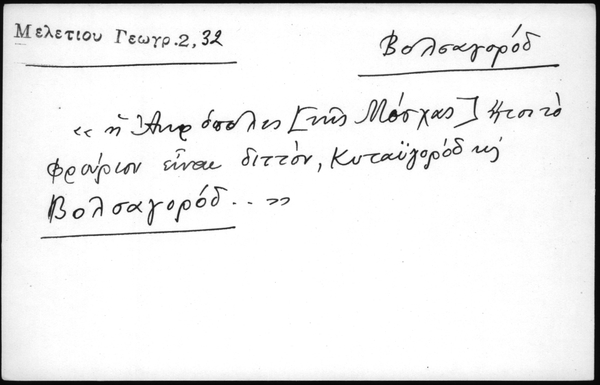 Μελετίου Γεωγρ. 2, 32
Βολσαγορόδ
« ἡ Ἀκρόπολις [τῆς Μόσχας] ἤτοι τὸ
φρούριον εἶναι διττὸν, Κυταϊγορόδ κ̀
Βολσαγορόδ . . »